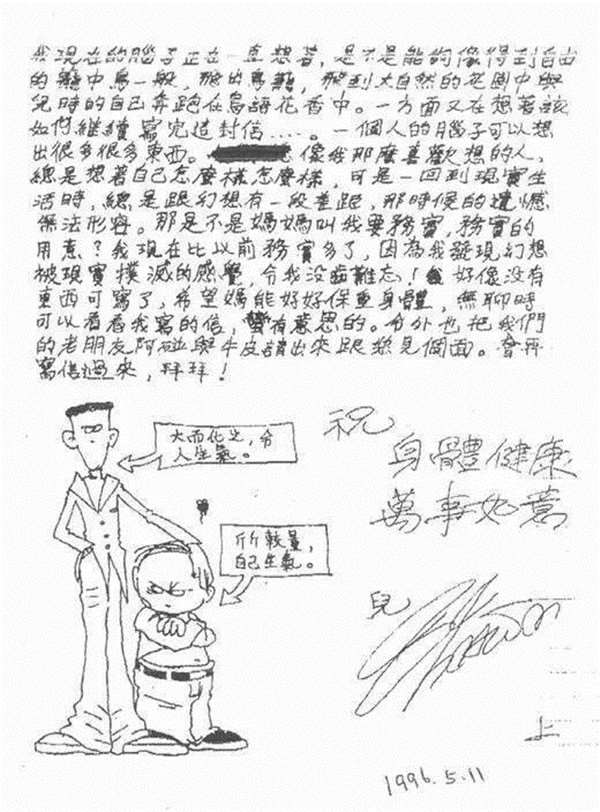 我現在的腦子正在一直想著，是不是能夠像得到自由
的籠中鳥一般，飛出鳥籠，飛到大自然的花園中與
兒時的自己奔跑在鳥語花香中。一方面又在想著該
如何繼續寫完這封信……。一個人的腦子可以想
出很多很多東西。像我那麼喜歡想的人，
總是想著自己怎麼樣怎麼樣，可是一回到現實生
活時，總是跟幻想有一段差距，那時候的遺憾
無法形容。那是不是媽媽叫我要務實，務實的
用意？我現在比以前務實多了，因為我發現幻想
被現實撲滅的感覺，令我沒齒難忘！好像沒有
東西可寫了，希望媽能好好保重身體，無聊時
可以看看我寫的信，蠻有意思的。令外也把我們
的老朋友阿碰與牛皮請出來跟您見個面。會再
寫信過來，拜拜！
大而化之，令
人生氣。
斤斤較量，
自己生氣。
祝
身體健康
萬事如意
兒
上
1996.5.11